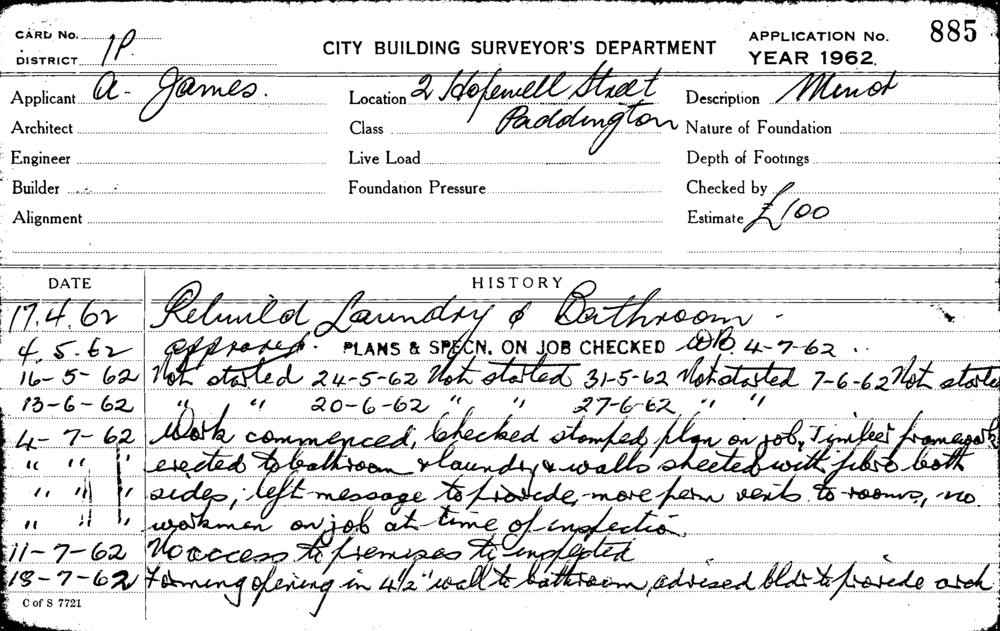 CARD No.
DISTRICT 1P.
CITY BUILDING SURVEYOR'S DEPARTMENT
APPLICATION No. 885
YEAR 1962.
Applicant A. James.
Location 2 Hopewell Street
Paddington
Description Minor
Architect
Class
Nature of Foundation
Engineer
Live Load
Depth of Footings
Builder
Foundation Pressure
Checked by
Alignment
Estimate £100
DATE HISTORY
17.4.62 Rebuild Laundry & Bathroom.
4.5.62 approved. PLANS & SPECN. ON JOB CHECKED 4-7-62
16-5-62 Not started 24-5-62 Not started 31-5-62 Not started 7-6-62 Not starte
13-6-62 " " 20-6-62 " " 27-6-62 " "
4-7-62 Work commenced, Checked stamped plan on job, Timber framework
" " " erected to bathroom & laundry & walls sheeted with fibro both
" " " sides, left message to provide, more perm vents to rooms, no
" " " workmen on job at time of inspection
11-7-62 No access to premises to inspected
18-7-62 Forming opening in 4½" wall to bathroom, advised bldr to provide arch
C of S 7721